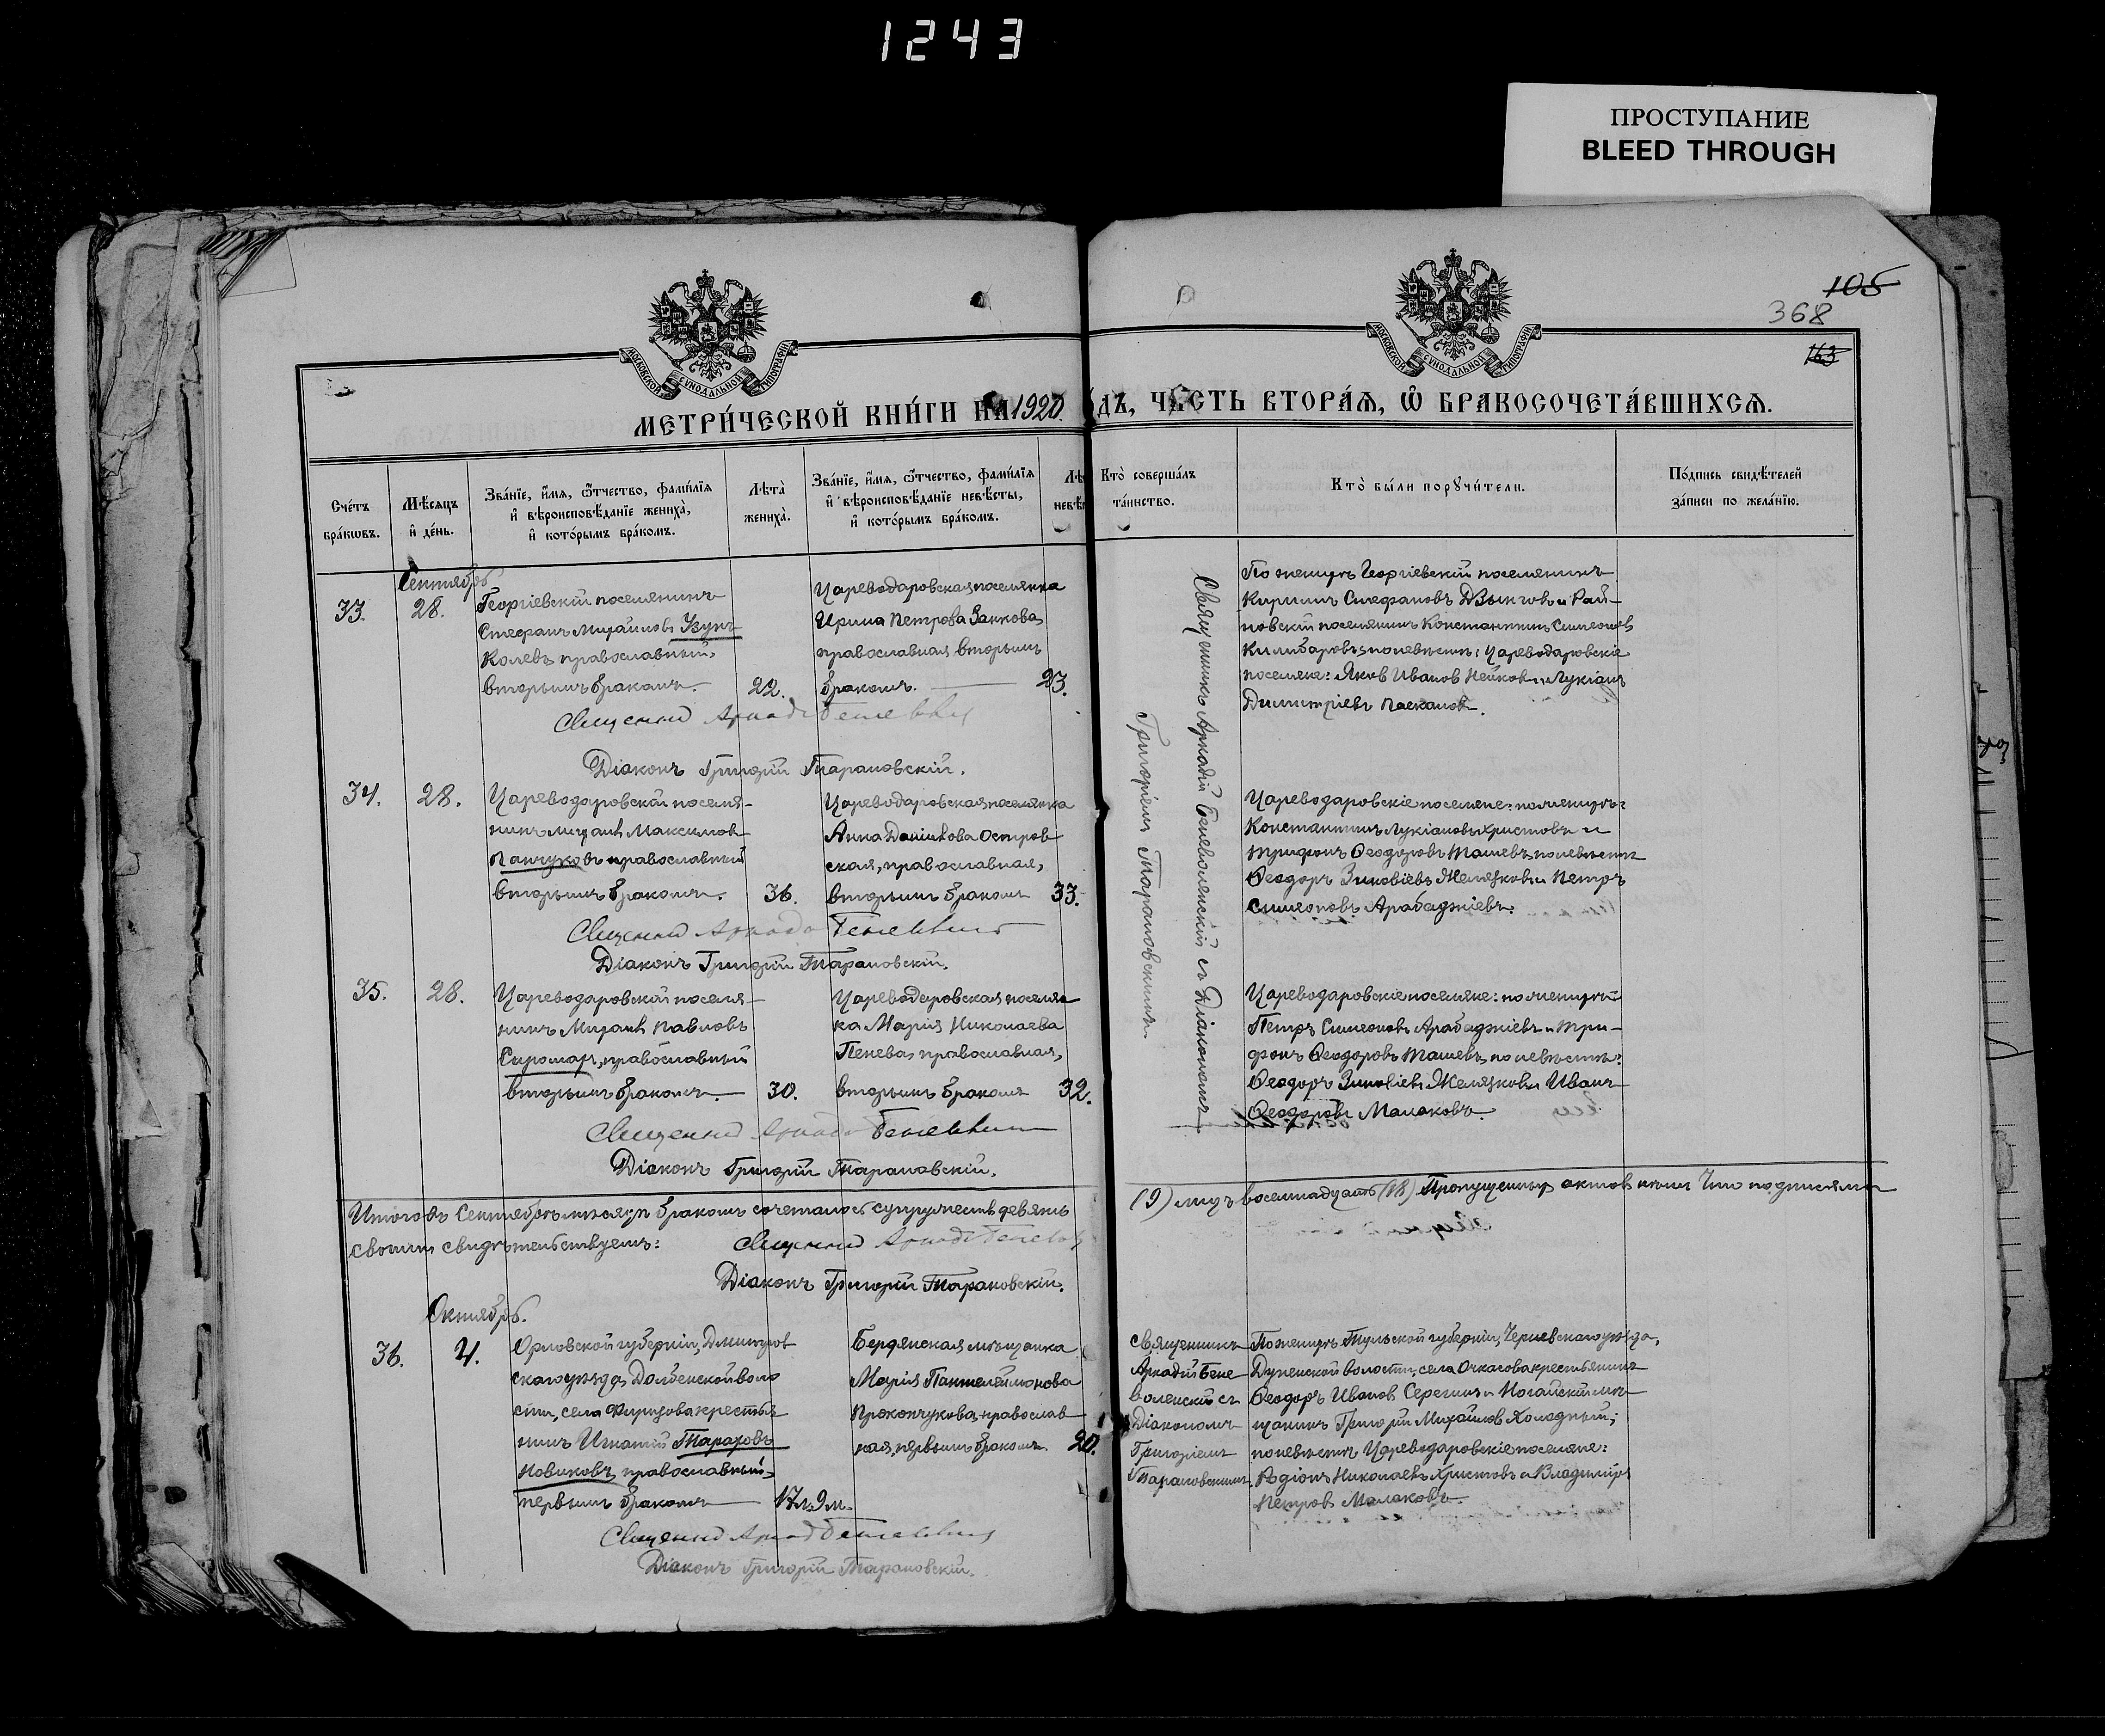 1243
ПРОСТУПАНИЕ
BLEED THROUGH
105
368
163
МОСКОВСКОЙ СѴНОДАЛЬНОЙ ТИПОГРАФІИ
МОСКОВСКОЙ СѴНОДАЛЬНОЙ ТИПОГРАФІИ
МЕТРИ́ЧЕСКОЙ КНИ́ГИ НА 1920 дъ, ЧАСТЬ ВТОРА́Я, Ѡ БРАКОСОЧЕТА́ВШИХСЯ.
Сче́тъ бра́кѡвъ.
Мѣ́сяцъ и де́нь.
Зва́нїе, и́мя, ѻ́тчество, фами́лїя и вѣроисповѣ́данїе жениха̀, и кото́рымъ бра́комъ.
Лѣта̀ жениха̀.
Зва́нїе, и́мя, ѻ́тчество, фами́лїя и вѣроисповѣ́данїе невѣ́сты, и кото́рымъ бра́комъ.
Лѣ невѣ
Кто̀ соверша́лъ та́инство.
Кто̀ бы́ли порꙋчи́тели.
По́дпись свидѣ́телей за́писи по жела́нїю.
Сентябрь
33.
28.
Георгіевскій поселянинъ
Стефанъ Михайловъ Узунъ
Колевъ православный,
вторымъ бракомъ.
22.
Цареводаровская поселянка
Ирина Петрова Занкова
православная вторымъ
бракомъ.
23.
Священникъ Аркадій Беневоленскій съ Діакономъ
Григоріемъ Тарановскимъ
По женихѣ Георгіевскій поселянинъ
Кириллъ Стефановъ и Рай-
новскій поселянинъ Константинъ Симеоновъ
по невѣстѣ: Цареводаровскіе
поселяне: Яковъ Ивановъ Нейковъ и Лукіанъ
Димитріевъ
Священникъ Аркадій Беневоленскій
Діаконъ Григорій Тарановскій.
34.
28.
Цареводаровскій поселя-
нинъ Михаилъ Максимовъ
Панчуковъ православный
вторымъ бракомъ.
36.
Цареводаровская поселянка
Анна Даніилова Остров
ская, православная,
вторымъ бракомъ
33.
Цареводаровскіе поселяне: по женихѣ:
Константинъ Лукіановъ Христовъ и
Трифонъ Ѳеодоровъ Ташевъ, по невѣстѣ
Ѳеодоръ Зиновіевъ Желязковъ и Петръ
Симеоновъ Арабаджіевъ.
Священникъ Аркадій Беневоленскій
Діаконъ Григорій Тарановскій.
35.
28.
Цареводаровскій поселя-
нинъ Михаилъ Павловъ
Сиромаръ, православный
вторымъ бракомъ.
30.
Цареводаровская поселян
ка Марія Николаева
Пенева, православная,
вторымъ бракомъ
32.
Цареводаровскіе поселяне: по женихѣ
Петръ Симеоновъ Арабаджіевъ и Три-
фонъ Ѳеодоровъ Ташевъ, по невѣстѣ:
Ѳеодоръ Зиновіевъ Желязковъ и Иванъ
Ѳеодоровъ Малаковъ.
Священникъ Аркадій Беневоленскій
Діаконъ Григорій Тарановскій.
Итого въ Сентябрѣ мѣсяцѣ бракомъ сочеталось супружествъ девять
(9) лицъ восемнадцать (18) Пропущенныхъ актовъ нѣтъ Что подписями
своими свидѣтельствуемъ:
Священникъ Аркадій Беневол
Діаконъ Григорій Тарановскій.
Октябрь.
36.
4.
Орловской губерніи, Дмитров
скаго уѣзда, Долбенской воло
сти, села Фиризова крестья
нинъ Игнатій Тараховъ
Новиковъ, православный,
первымъ бракомъ
17 л. 9 м.
Бердянская мѣщанка
Марія Пантелеймонова
Прокопчукова, православ
ная, первымъ бракомъ.
20.
Священникъ
Аркадій Бене
воленскій съ
Діакономъ
Григоріемъ
Тарановскимъ.
По женихѣ Тульской губерніи, Чернскаго уѣзда,
волости, села Очкасова крестьянинъ
Ѳеодоръ Ивановъ Серегинъ и Ногайскій мѣ
щанинъ Григорій Михайловъ Холодный;
по невѣстѣ Цареводаровскіе поселяне:
Родіонъ Николаевъ Христовъ и Владиміръ
Петровъ Малаковъ.
Священникъ Аркадій Беневоленскій
Діаконъ Григорій Тарановскій.